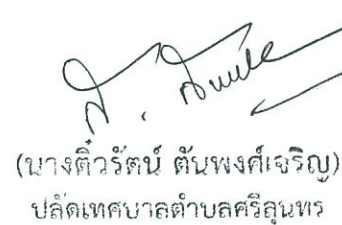 (นางติ๋วรัตน์ ตันพงศ์เจริญ)
ปลัดเทศบาลตำบลศรีสุนทร